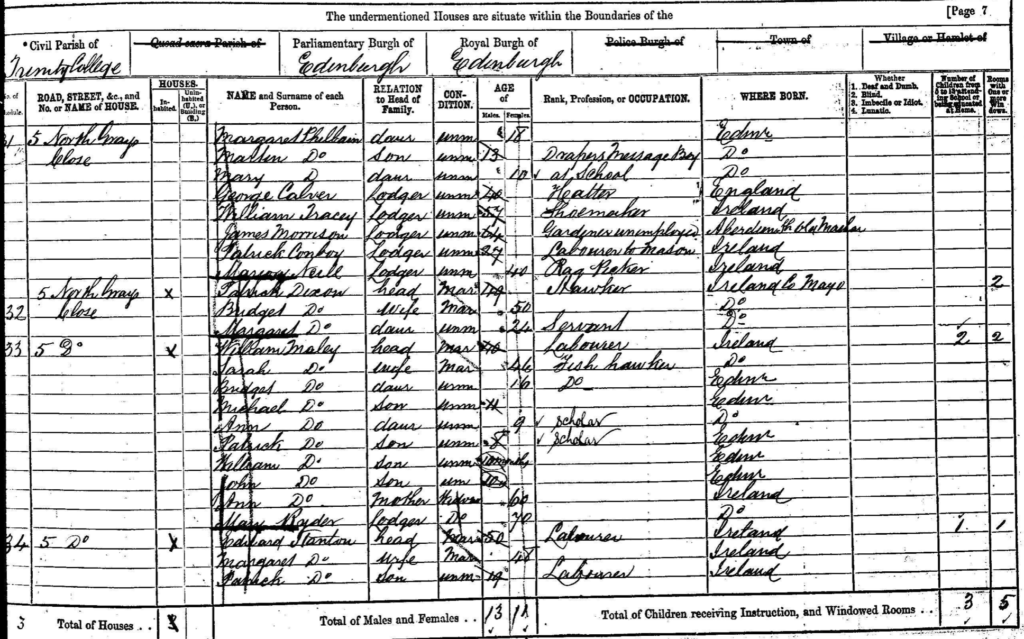 The undermentioned Houses are situate within the Boundaries of the [Page 7
Civil Parish of Quoad sacra Parish of Parliamentary Burgh of Royal Burgh of Police Burgh of Town of Village or Hamlet of
Trinity College Edinburgh Edinburgh
No. of Schedule. ROAD, STREET, &c., and No. or NAME of HOUSE. HOUSES. Inhabited. Uninhabited (U.), or Building (B.) NAME and Surname of each Person. RELATION to Head of Family. CONDITION. AGE of Males. Females. Rank, Profession, or OCCUPATION. WHERE BORN. Whether 1. Deaf and Dumb. 2. Blind. 3. Imbecile or Idiot. 4. Lunatic. Number of Children from 5 to 13 attending School or being educated at Home. Rooms with One or more Windows.
31 5 North Grays Margaret Philbain daur unm 18 Edinr
Close Martin Do son unm 13 Drapers Message Boy Do
Mary D daur unm 10 at School Do
George Calver Lodger unm Hatter England
William Tracey Lodger unm 57 Shoemaker Ireland
James Morrison Lodger unm 64 Gardener unemployed Aberdeen
Patrick Conboy Lodger unm 27 Labourer to Mason Ireland
Neile Lodger unm 40 Rag Picker Ireland
5 North Grays x Patrick Dixon head Mar 49 Hawker Ireland Co Mayo 2
32 Close Bridget Do Wife Mar 50 Do
Margaret Do daur unm 24 Servant Do
33 5 Do x William Maley head Mar 40 Labourer Ireland 2 2
Sarah Do wife Mar 46 Fish hawker Do
Bridget Do daur unm 16 Do Edinr
Michael Do son unm 11 Edinr
Ann Do daur unm 9 scholar Do
Patrick Do son unm 8 scholar Edinr
William Do son unm months Edinr
John Do son um 10 Edinr
Ann Do Mother Widow 60 Ireland
Mary Ryder Lodger Do 70 Do
34 5 Do x Edward Stanton head Mar 50 Labourer Ireland 1 1
Margaret Do wife Mar 48 Ireland
Patrick Do son unm 19 Labourer Ireland
3 Total of Houses . . 3 Total of Males and Females . . 13 11 Total of Children receiving Instruction, and Windowed Rooms . . 3 5